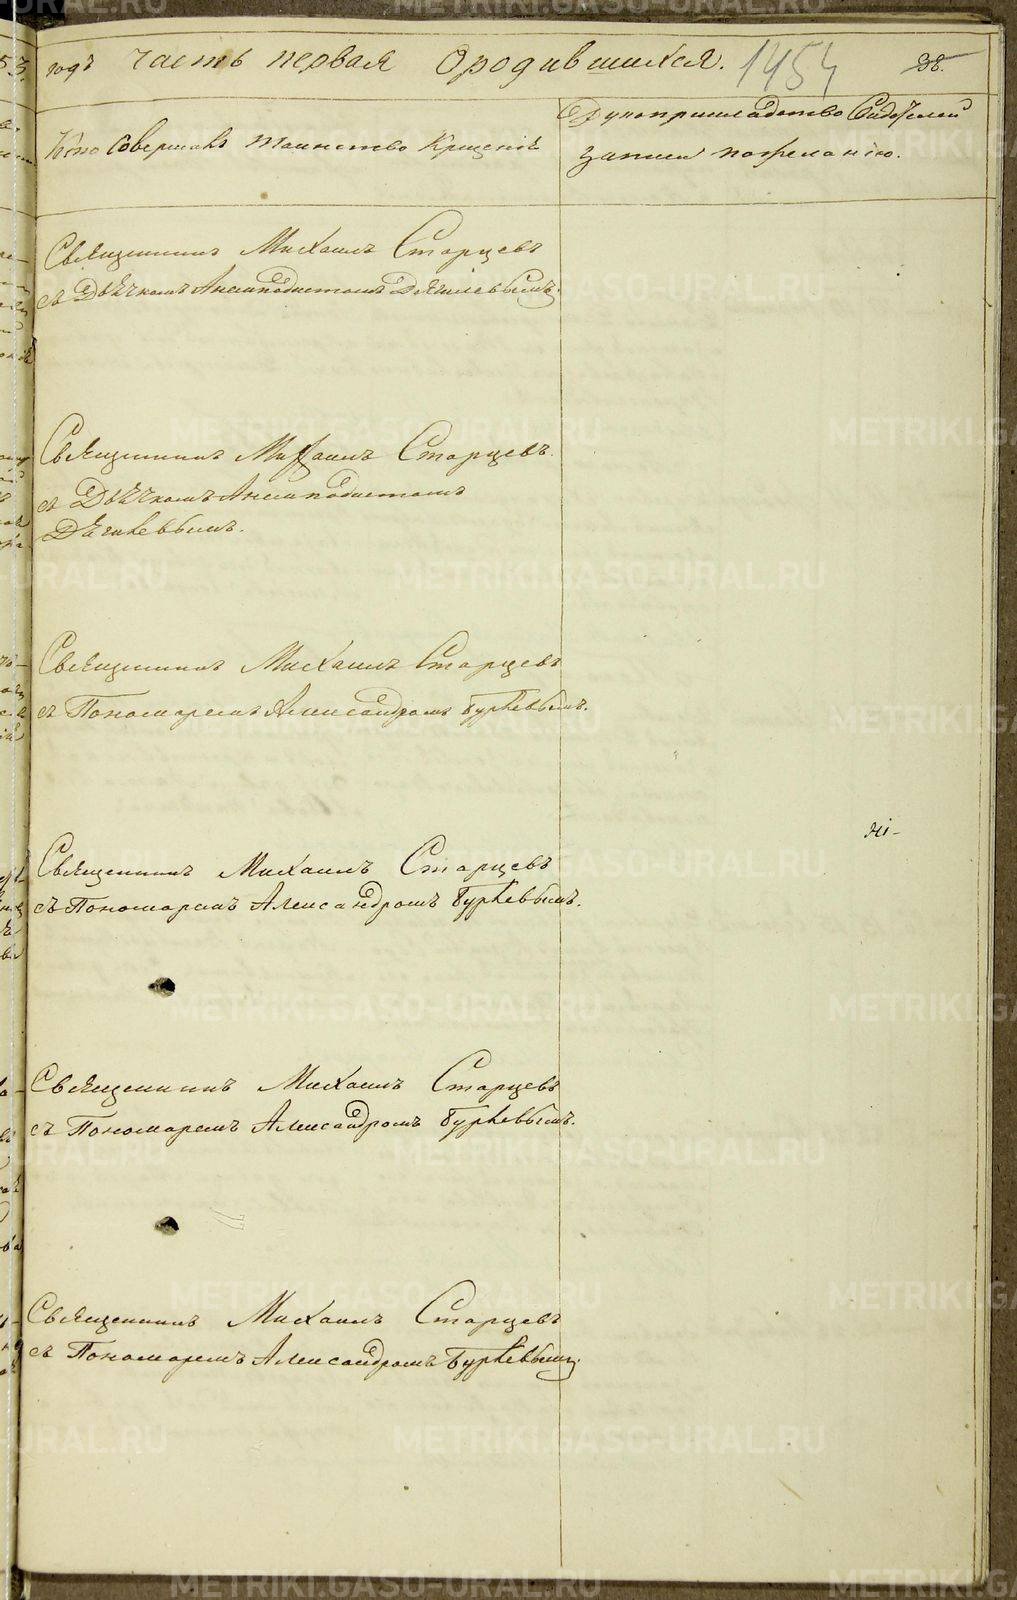 годъ часть первая ородившихся. 1454 38.
Кто совершалъ таинство Крещенія
Рукоприкладство Свидѣтелей
записи пожеланію.
Священникъ Михаилъ Старцевъ
съ Дьячкомъ Анемподистомъ Дягилевымъ.
Священникъ Михаилъ Старцевъ.
съ Дьячкомъ Анемподистомъ
Дягилевымъ.
Священникъ Михаилъ Старцевъ
съ Пономаремъ Александромъ
Священникъ Михаилъ Старцевъ
съ Пономаремъ Александромъ
Священникъ Михаилъ Старцевъ
съ Пономаремъ Александромъ
Священникъ Михаилъ Старцевъ
съ Пономаремъ Александромъ
METRIKI.GASO-URAL.RU